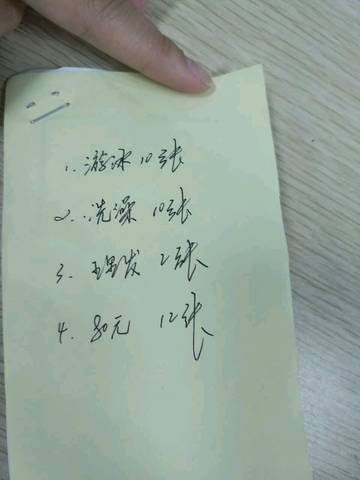 1. 游泳 10张
2. 洗澡 10张
3. 理发 2张
4. 80元 12张